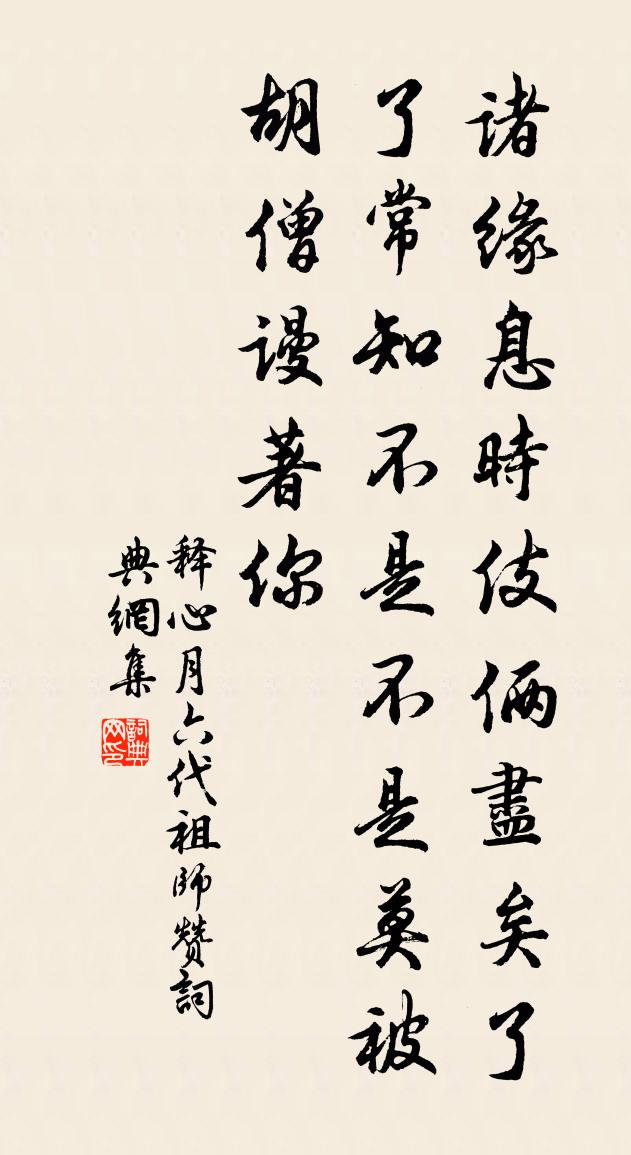 諸緣息時伎倆盡矣了
了常知不是不是莫被
胡僧謾著你
释心月六代祖师赞詞
典網集
詞典網印